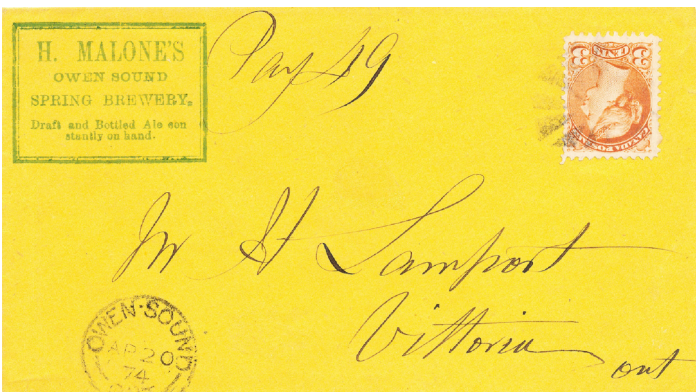 H. MALONE'S
OWEN SOUND
SPRING BREWERY.
Draft and Bottled Ale con
stantly on hand.
Pay 49
3 CENTS 3
CANADA POSTAGE
Mr H Lamport
Vittoria
ont
OWEN·SOUND
AP 20
74